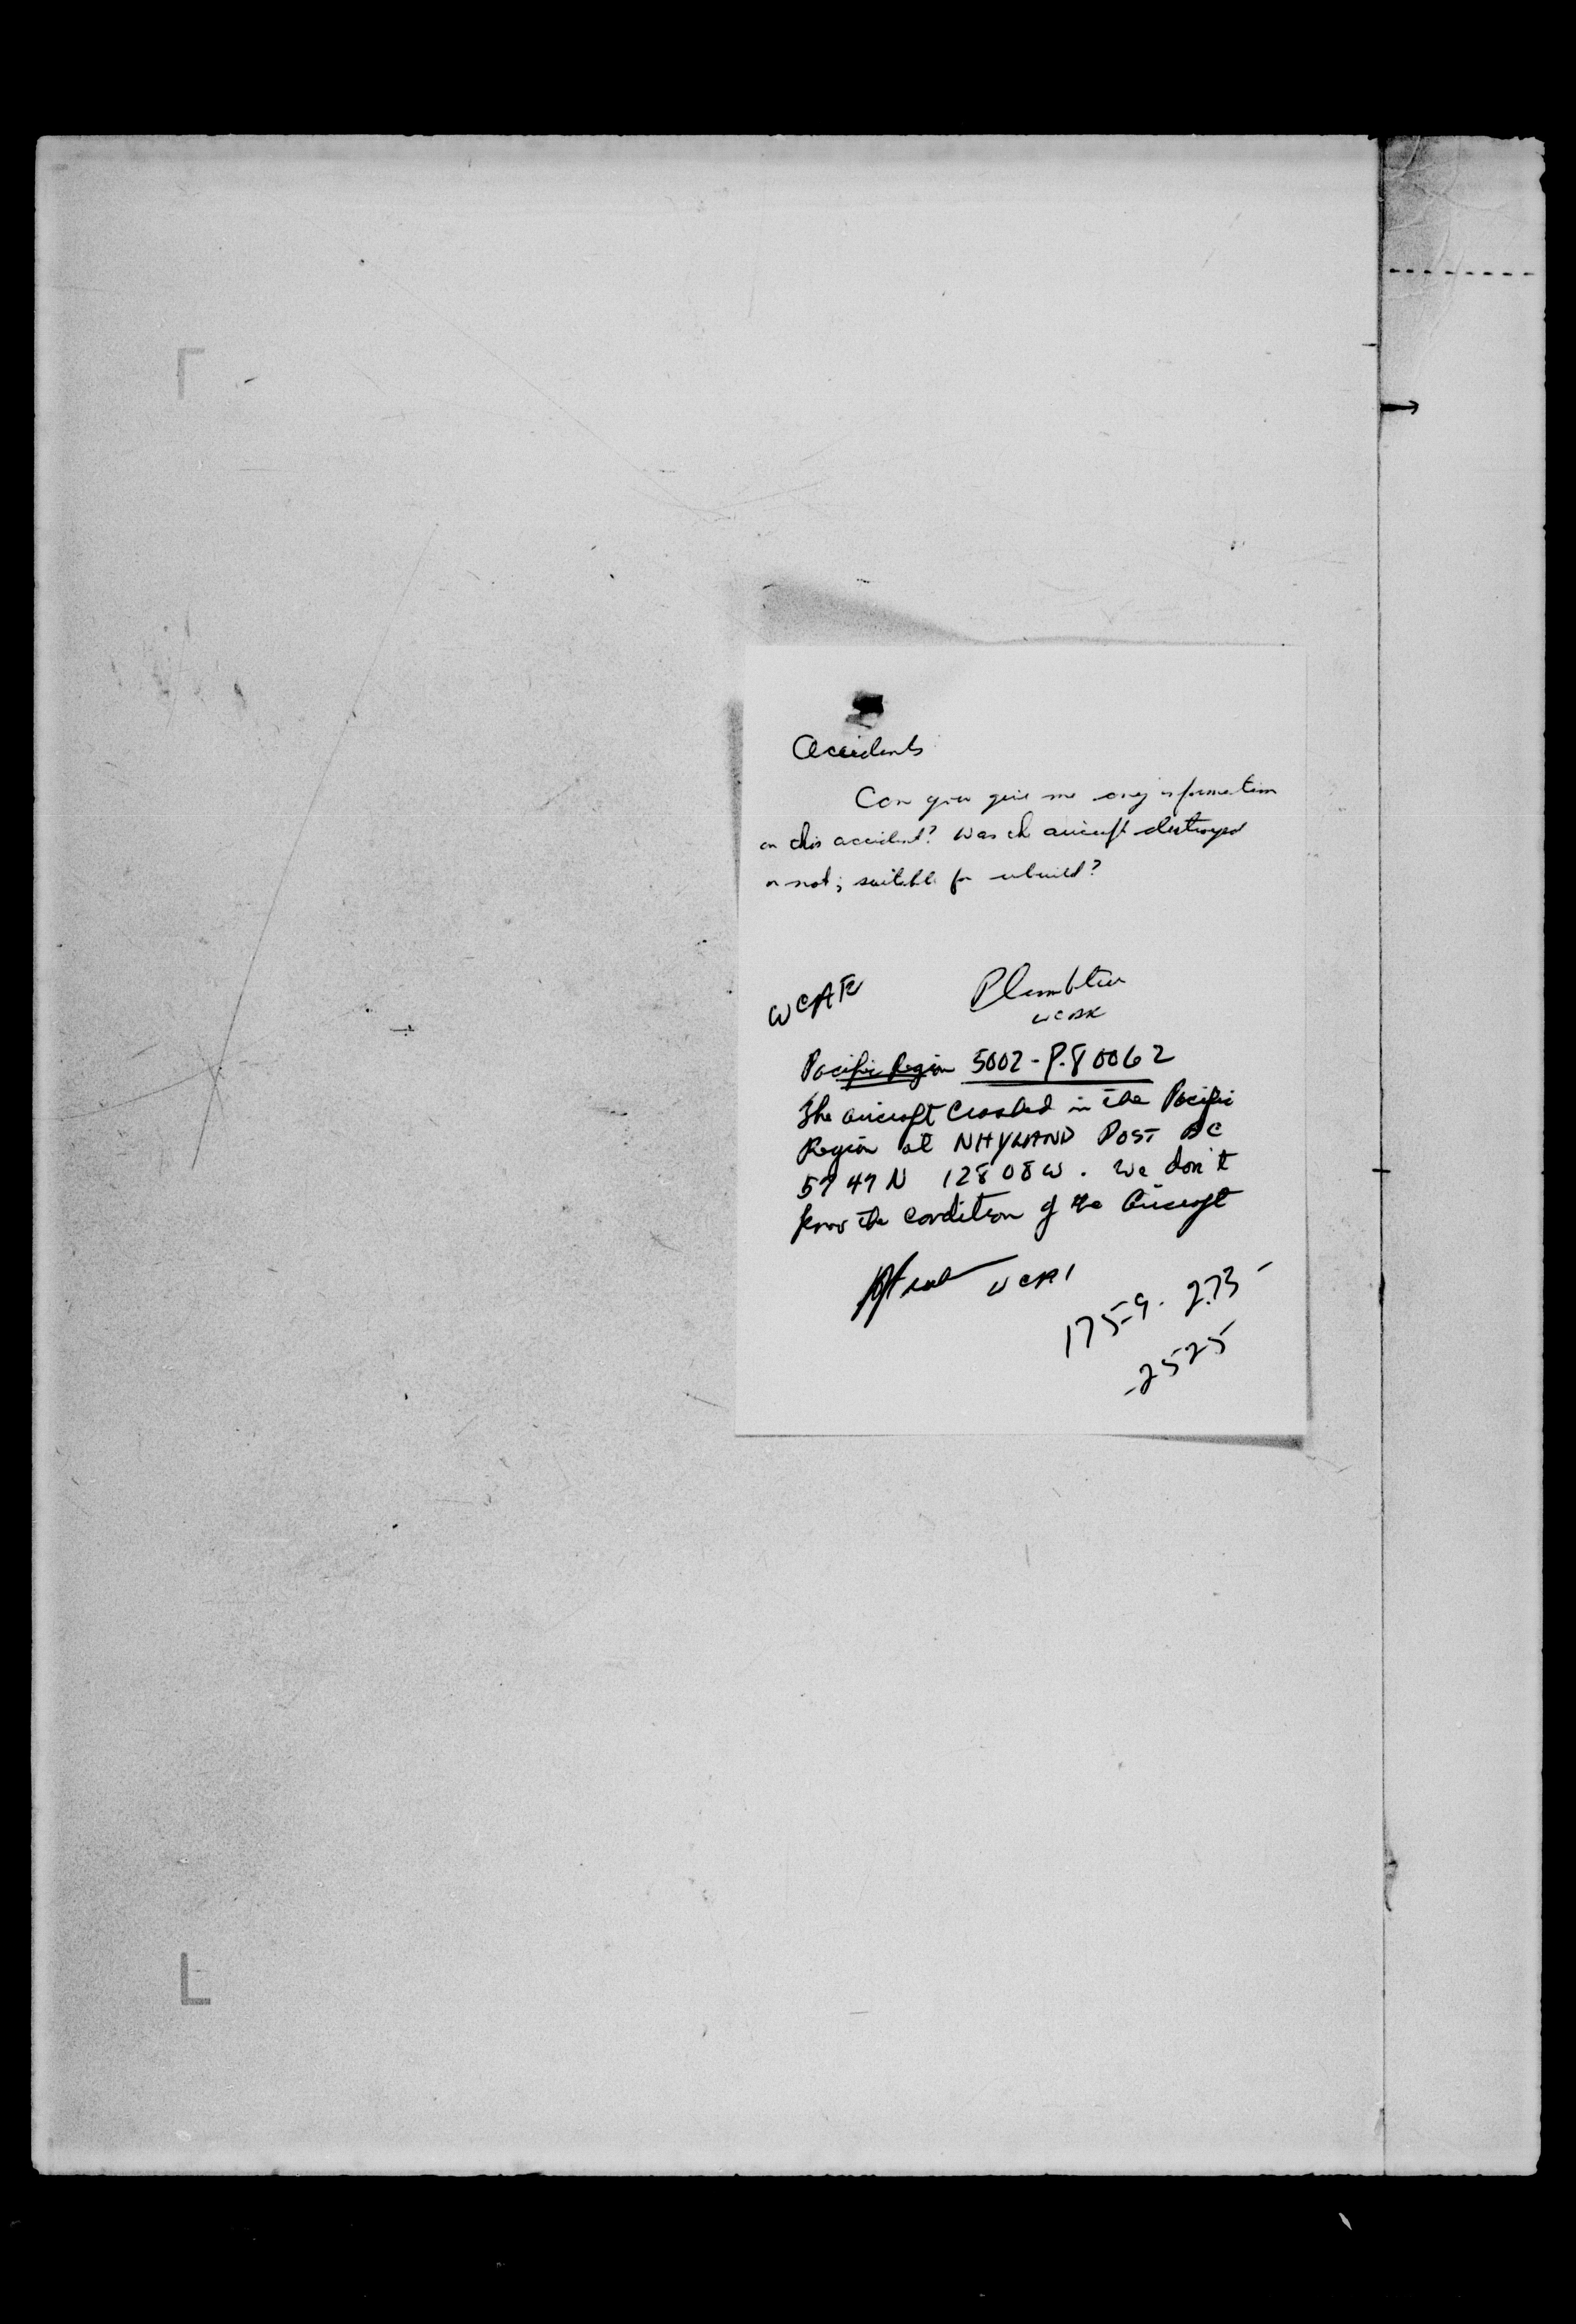 Accidents
Can you give me any information
on this accident? Was the aircraft destroyed
or not; suitable for rebuild?
WCAR
Pacific Region 5002-P.80062
The aircraft crashed in the Pacific
Region at NHYLAND POST BC
5747N 12808W. We don't
know the condition of the Aircraft
1759. 273-
-2525